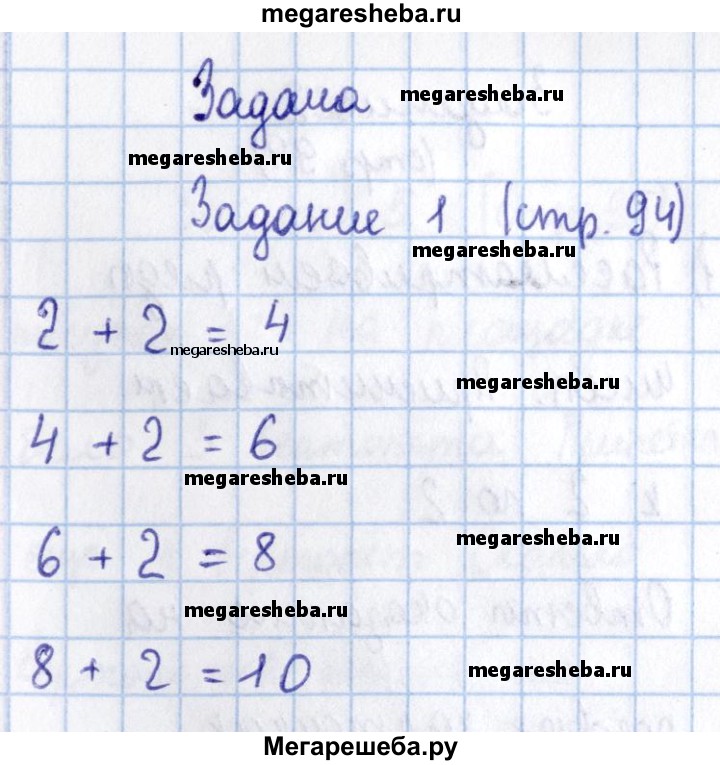 megaresheba.ru
Задача
megaresheba.ru
megaresheba.ru
Задание 1 (стр. 94)
megaresheba.ru
2 + 2 = 4
megaresheba.ru
megaresheba.ru
4 + 2 = 6
megaresheba.ru
6 + 2 = 8
megaresheba.ru
megaresheba.ru
8 + 2 = 10
megaresheba.ru
Мегарешеба.ру